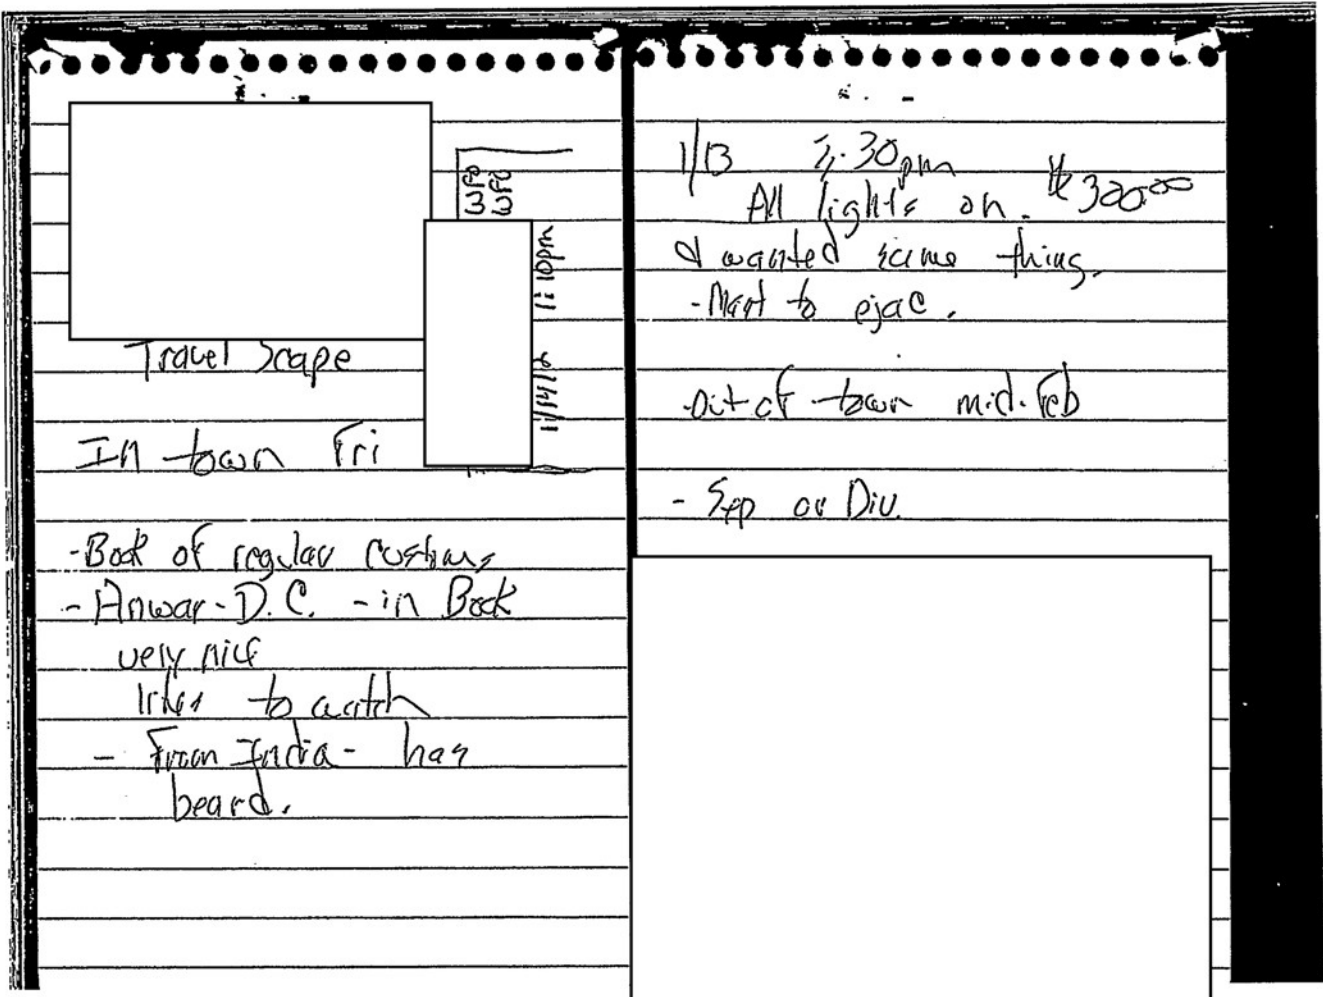 Travel Scape
In town Fri
- Book of regular customs
- Anwar - D.C. - in Book
very nice
likes to watch
- From India - has
beard.
WFO
WFO
1:10pm
1/13 :30pm
$300.00
All lights on.
wanted same thing.
- to ejac.
- Out of town mid-Feb
- Sep or Div.